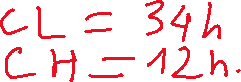 CL = 34h
CH = 12h.